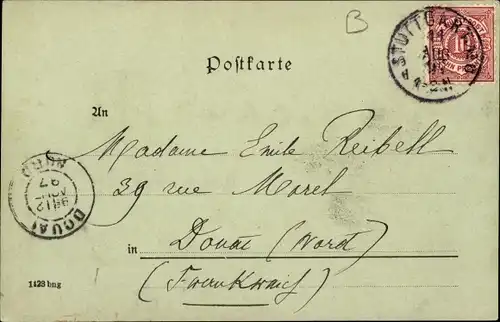 B
STUTTGART
Postkarte
An
Madame Emile Reibell
39 rue Morel
in Douai (Nord)
(Frankreich)
DOUAI
NORD
12
97
1423 bng